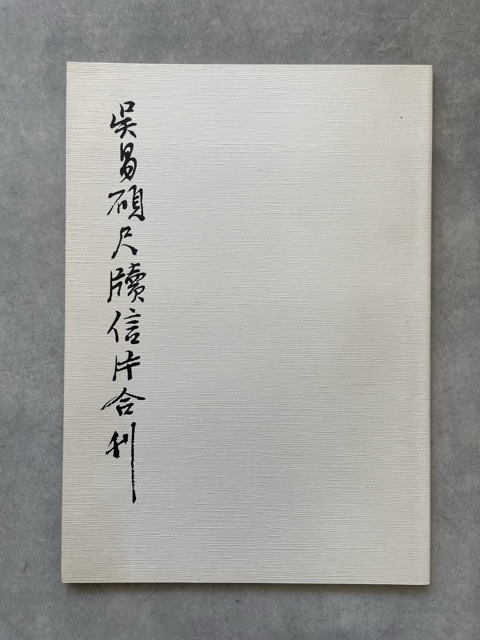 吴昌碩尺牘信片合刊